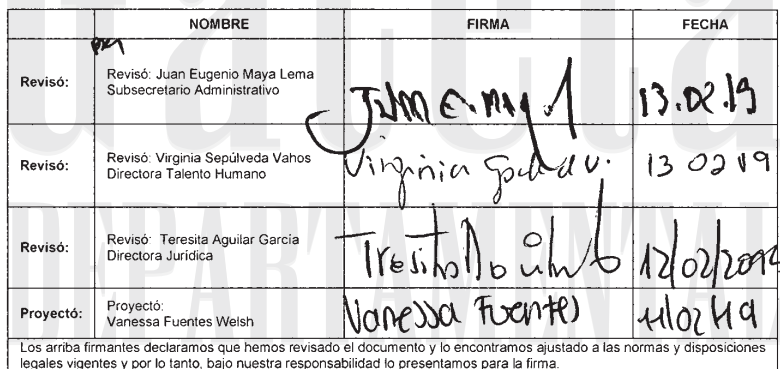 NOMBRE FIRMA FECHA
Revisó: Revisó: Juan Eugenio Maya Lema
Subsecretario Administrativo
13.02.19
Revisó: Revisó: Virginia Sepúlveda Vahos
Directora Talento Humano
Virginia 13 02 19
Revisó: Revisó: Teresita Aguilar García
Directora Jurídica
12/02/
Proyectó: Proyectó:
Vanessa Fuentes Welsh
Vanessa Fuentes 11/02/19
Los arriba firmantes declaramos que hemos revisado el documento y lo encontramos ajustado a las normas y disposiciones
legales vigentes y por lo tanto, bajo nuestra responsabilidad lo presentamos para la firma.
DEPARTAMENTAL